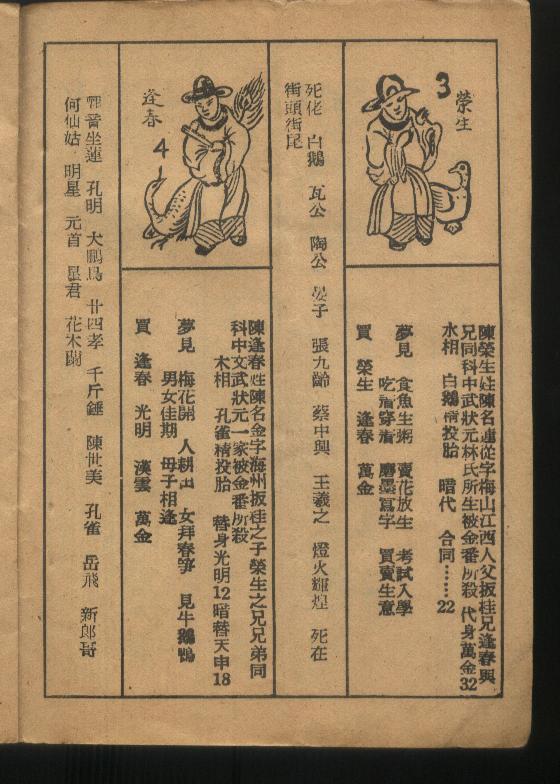 3
榮生
陳榮生姓陳名逢從字梅山江西人父扳桂兄逢春與
兄同科中武狀元林氏所生被金番所殺 代身萬金32
水相 白鵝精投胎 暗代 合同……22
夢見 食魚生粥 賣花放生 考試入學
吃淸穿淸 磨墨寫字 買賣生意
買 榮生 逢春 萬金
死佬 白鵝 瓦公 陶公 晏子 張九齡 蔡中興 王羲之 燈火輝煌 死在
街頭街尾
逢春
4
陳逢春姓陳名金字海州扳桂之子榮生之兄兄弟同
科中文武狀元一家被金番所殺
木相 孔雀精投胎 替身光明12暗替天申18
夢見 梅花開 人耕田 女拜春箏 見牛鵝鴨
男女佳期 母子相逢
買 逢春 光明 漢雲 萬金
觀音坐蓮 孔明 大鵬鳥 廿四孝 千斤錘 陳世美 孔雀 岳飛 新郎哥
何仙姑 明星 元首 星君 花木蘭